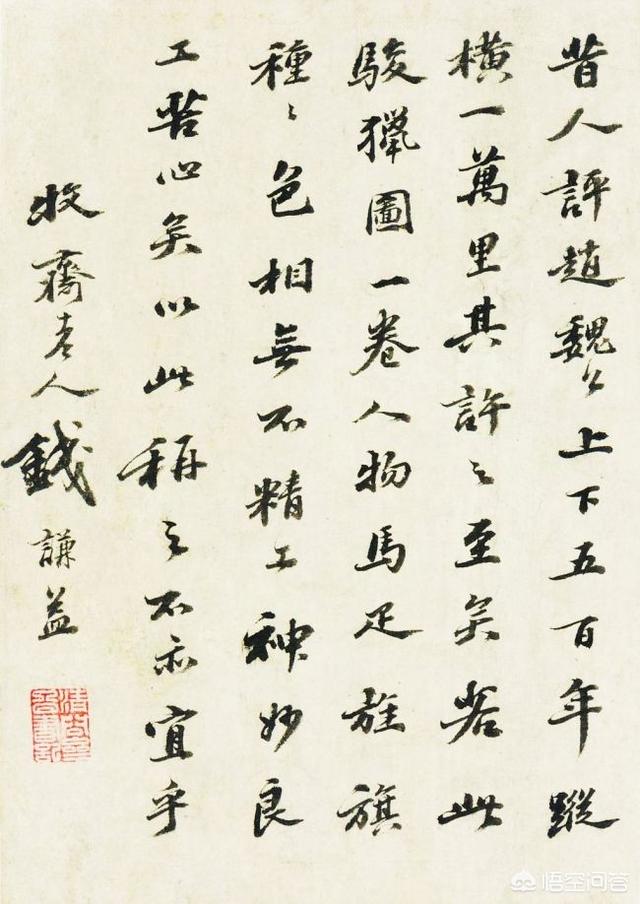 昔人評趙魏公上下五百年蹤
橫一萬里其許之至矣若此
駿獵圖一卷人物馬足旌旗
種〻色相無不精工神妙良
工苦心矣以此稱之不亦宜乎
牧齋老人錢謙益
悟空问答